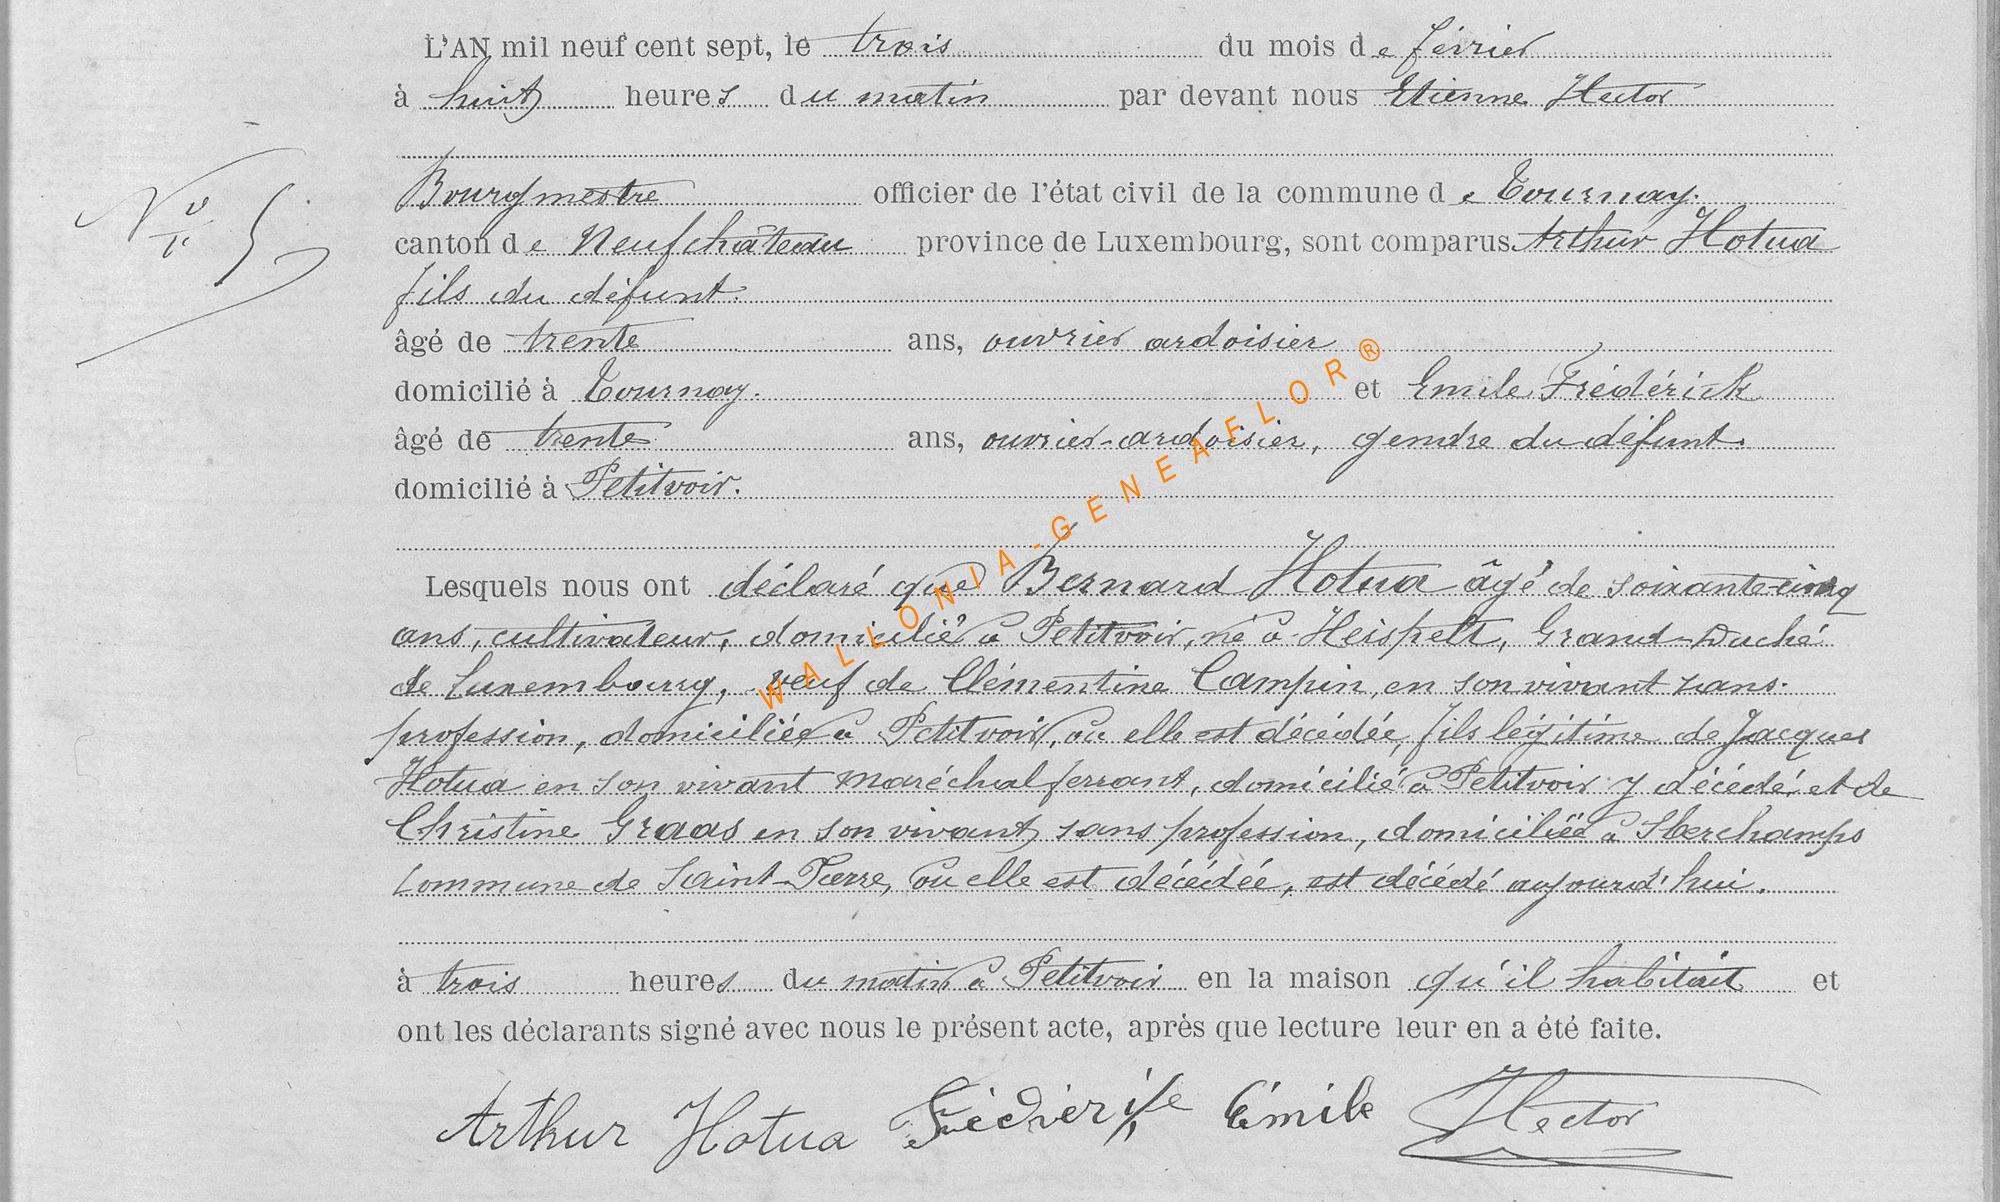 L'AN mil neuf cent sept, le trois du mois de février
à huit heures du matin par devant nous Etienne Hector
Bourgmestre officier de l'état civil de la commune de Tournay.
N° 5
canton de Neufchâteau province de Luxembourg, sont comparus Arthur Hotua
fils du défunt.
âgé de trente ans, ouvrier ardoisier
domicilié à Tournay. et Emile Frédérick
âgé de trente ans, ouvrier-ardoisier, gendre du défunt.
domicilié à Petitvoir.
Lesquels nous ont déclaré que Bernard Hotua âgé de soixante-cinq
ans, cultivateur, domicilié à Petitvoir, né à Heispelt, Grand-Duché
de Luxembourg, veuf de Clémentine Campin, en son vivant sans
profession, domiciliée à Petitvoir, où elle est décédée, fils légitime de Jacques
Hotua en son vivant maréchal ferrant, domicilié à Petitvoir y décédé et de
Christine Graas en son vivant sans profession, domiciliée à Sberchamps
commune de Saint-Pierre, où elle est décédée, est décédé aujourd'hui.
à trois heures du matin à Petitvoir en la maison qu'il habitait et
ont les déclarants signé avec nous le présent acte, après que lecture leur en a été faite.
Arthur Hotua Emile Hector
WALLONIA-GENEAFLOR®